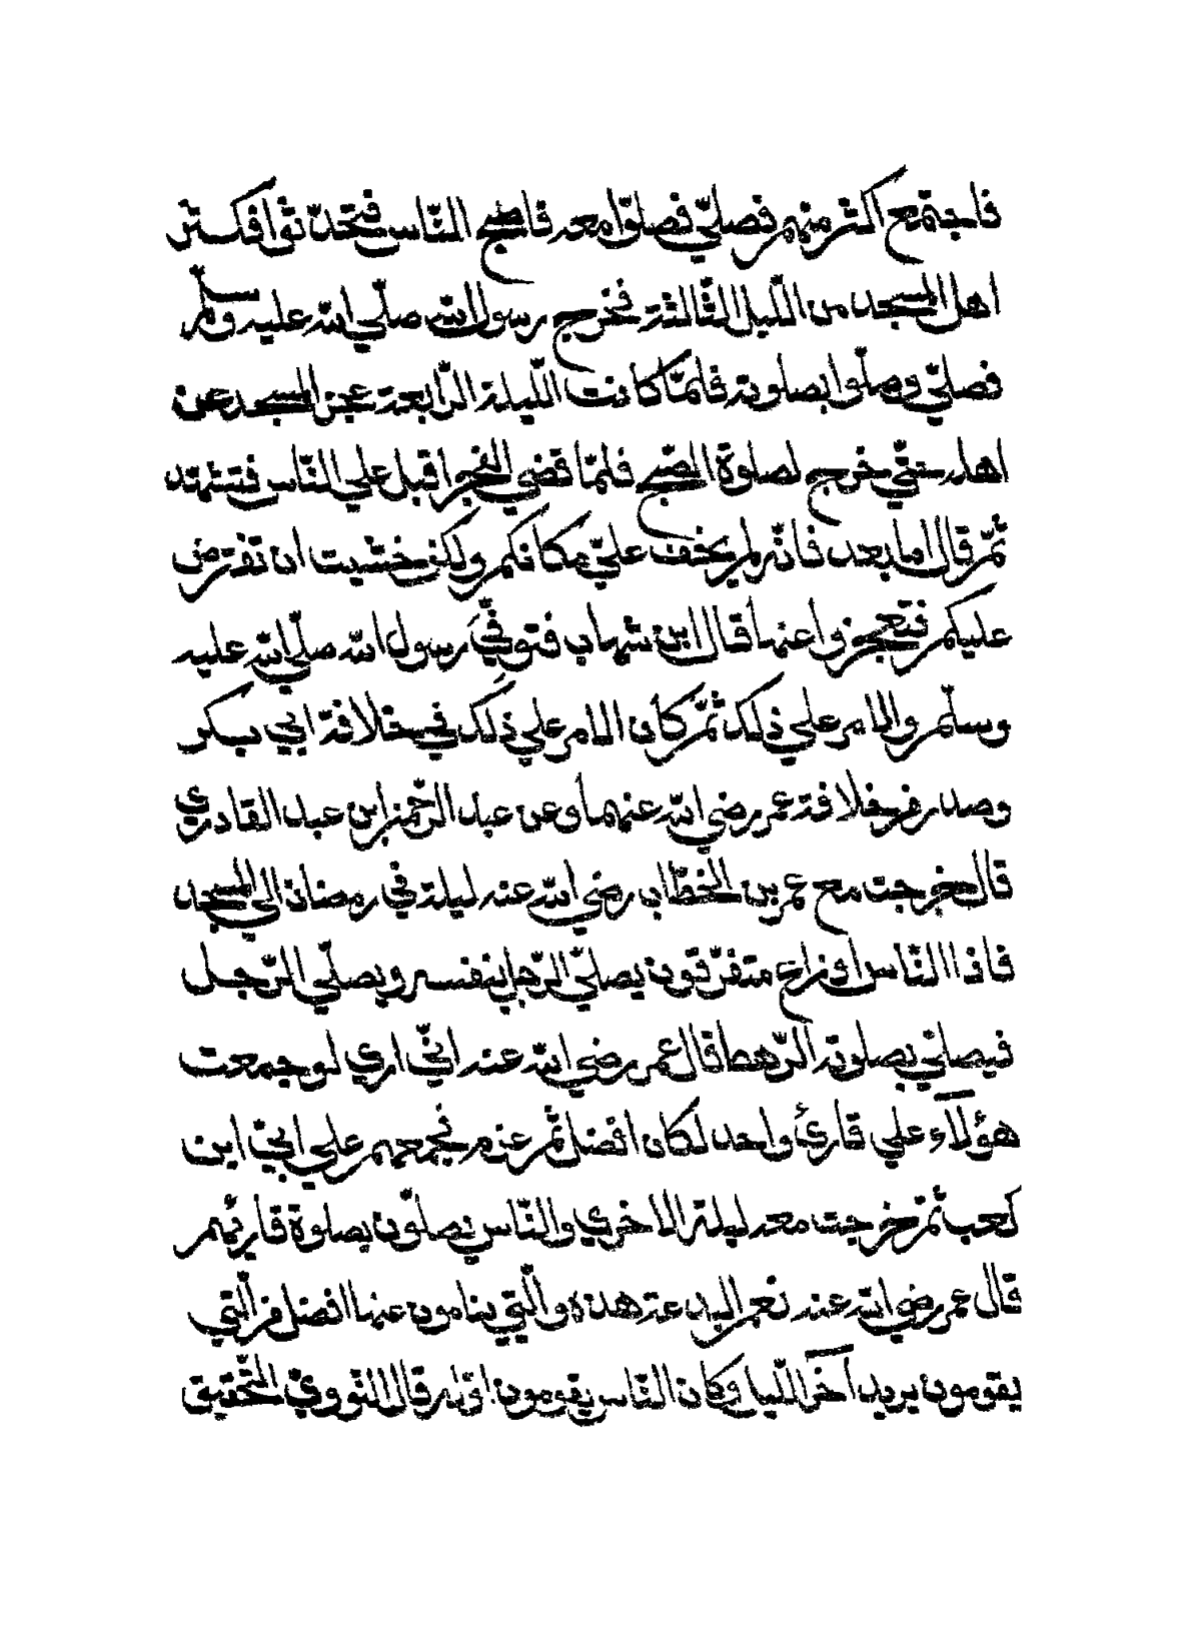 فاجتمع اكثر منهم فصلّي فصلّوا معه فاصبح النّاس فتحدّثوا فكثر
اهل المسجد من اللّيل الثّالثة فخرج رسول الله صلّي الله عليه وسلّم
فصلّي وصلّوا بصلوته فلمّا كانت اللّيلة الرّابعة عجز المسجد عن
اهله حتّي خرج لصلوة الصّبح فلمّا قضي الفجر اقبل علي النّاس فتشهّد
ثمّ قال اما بعد فانّه لم يخف عليّ مكانكم ولكن خشيت ان تفترض
عليكم فتعجزوا عنها قال ابن شهاب فتوفّي رسول الله صلّي الله عليه
وسلّم والامر علي ذلك ثمّ كان الامر علي ذلك في خلافة ابي بكر
وصدر من خلافة عمر رضي الله عنهما وعن عبد الرّحمن ابن عبد القادري
قال خرجت مع عمر بن الخطّاب رضي الله عنه ليلة في رمضان الي المسجد
فاذا النّاس اوزاع متفرّقون يصلّي الرّجل بنفسه ويصلّي الرّجل
فيصلّي بصلوته الرّهط قال عمر رضي الله عنه انّي اري لو جمعت
هؤلآء علي قارئ واحد لكان افضل ثمّ عزم نجمعهم علي ابيّ ابن
كعب ثمّ خرجت معه ليلة الاخري والنّاس يصلّون بصلوة قارئهم
قال عمر رضي الله عنه نعم البدعة هذه والّتي ينامون عنها افضل من الّتي
يقومون يريد آخر اللّيل وكان النّاس يقومون اوّله قال النّووي في التّحقيق